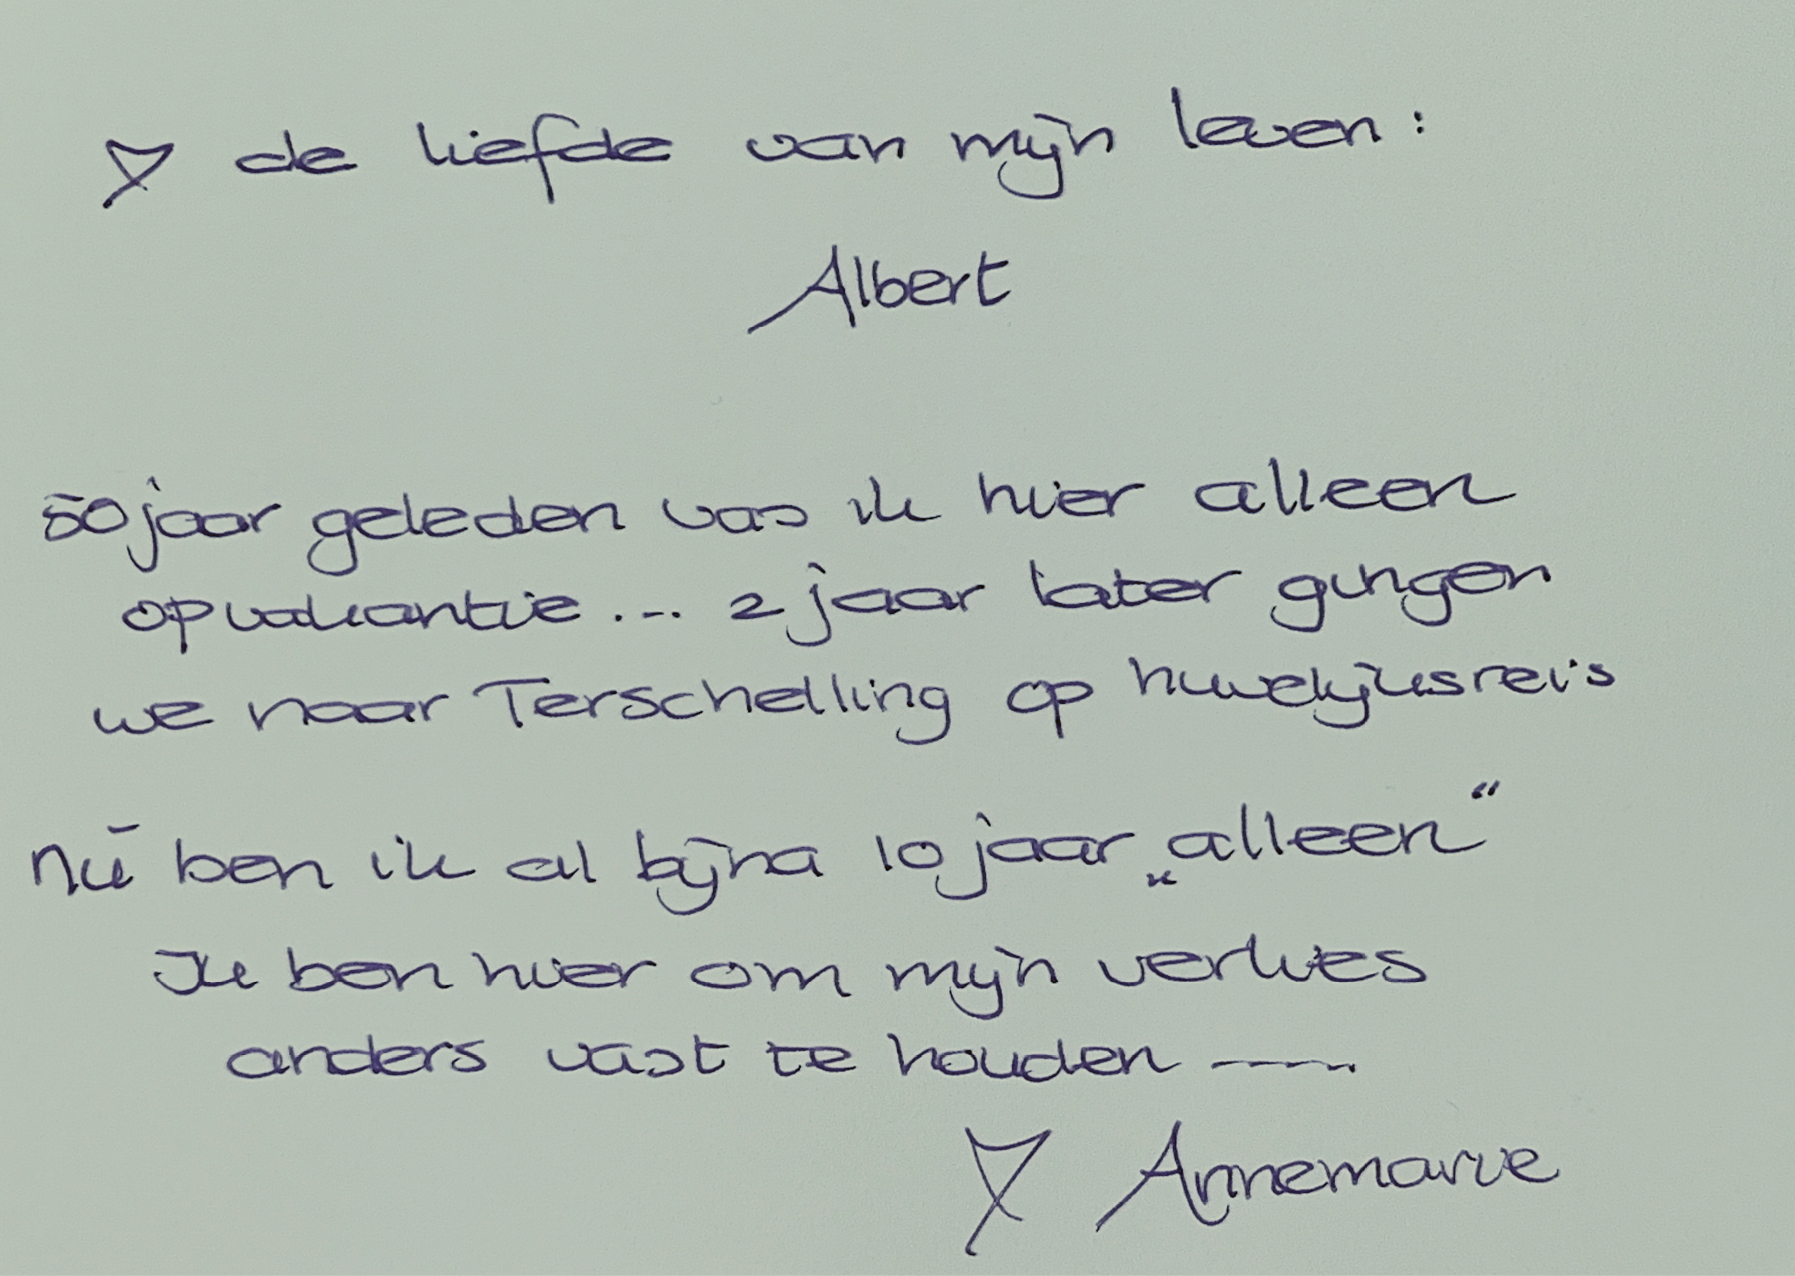 ♡ de liefde van mijn leven:
Albert
50 jaar geleden was ik hier alleen
op vakantie... 2 jaar later gingen
we naar Terschelling op huwelijksreis
Nū ben ik al bijna 10 jaar „alleen“
Ik ben hier om mijn verlies
anders vast te houden ——
♡ Annemarie